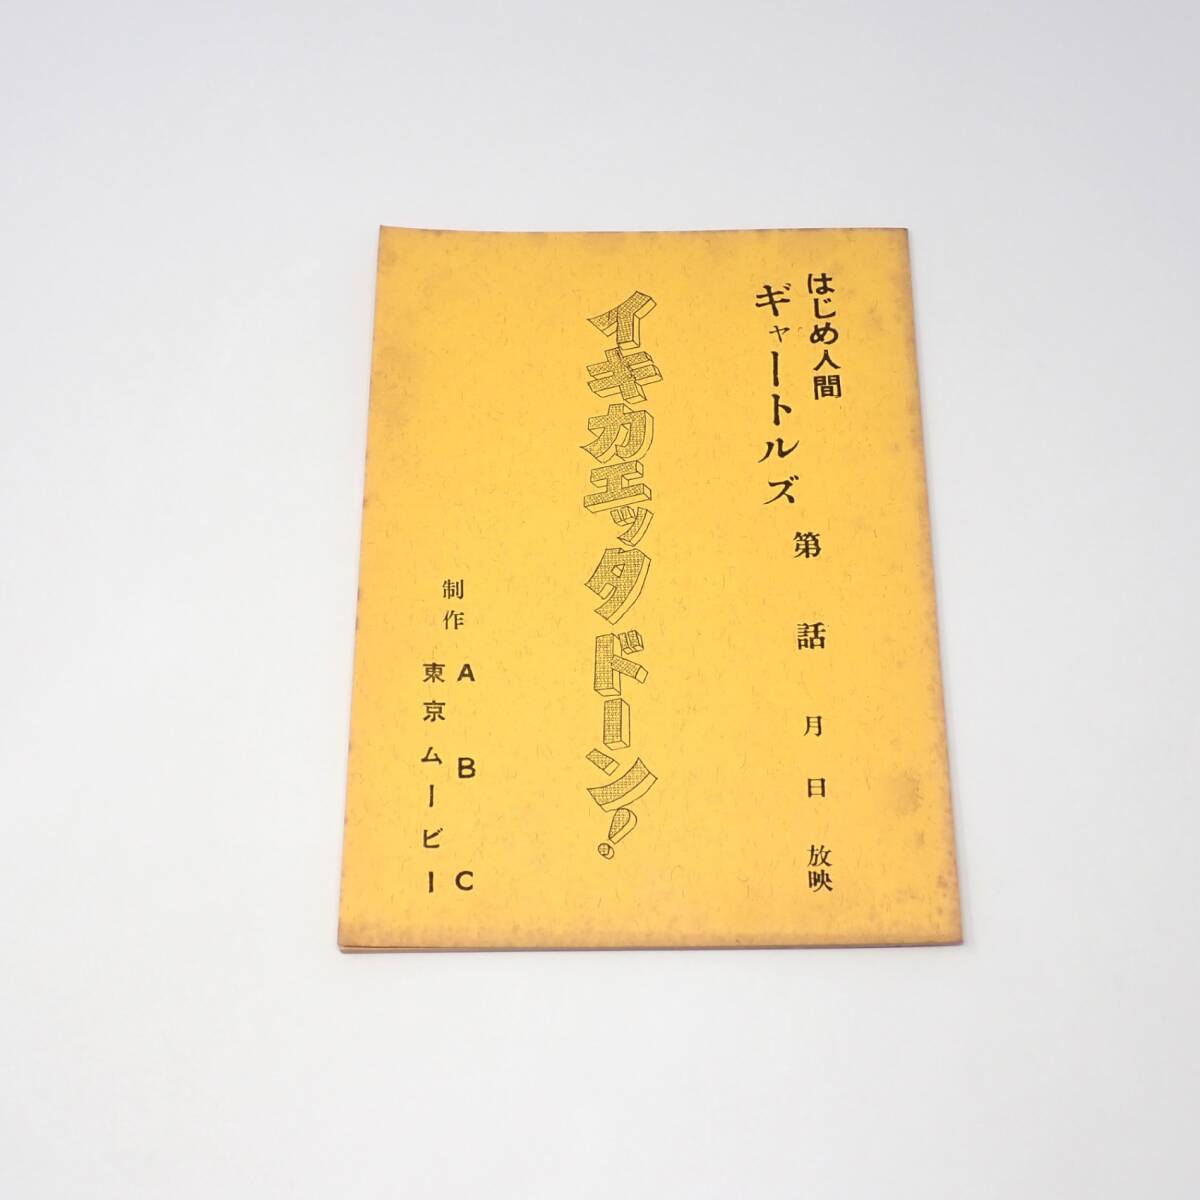 はじめ人間
ギャートルズ
第 話 月 日 放映
イキカエッタドーン!
制作
ABC
東京ムービー